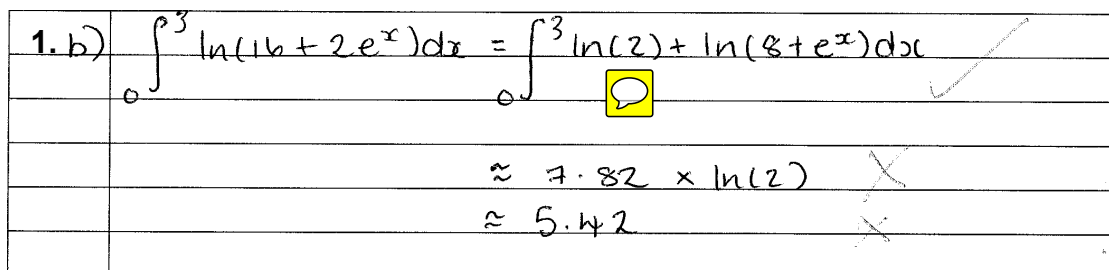 1. b) ∫₀³ ln(16 + 2eˣ)dx = ∫₀³ ln(2) + ln(8 + eˣ)dx
≈ 7.82 × ln(2)
≈ 5.42